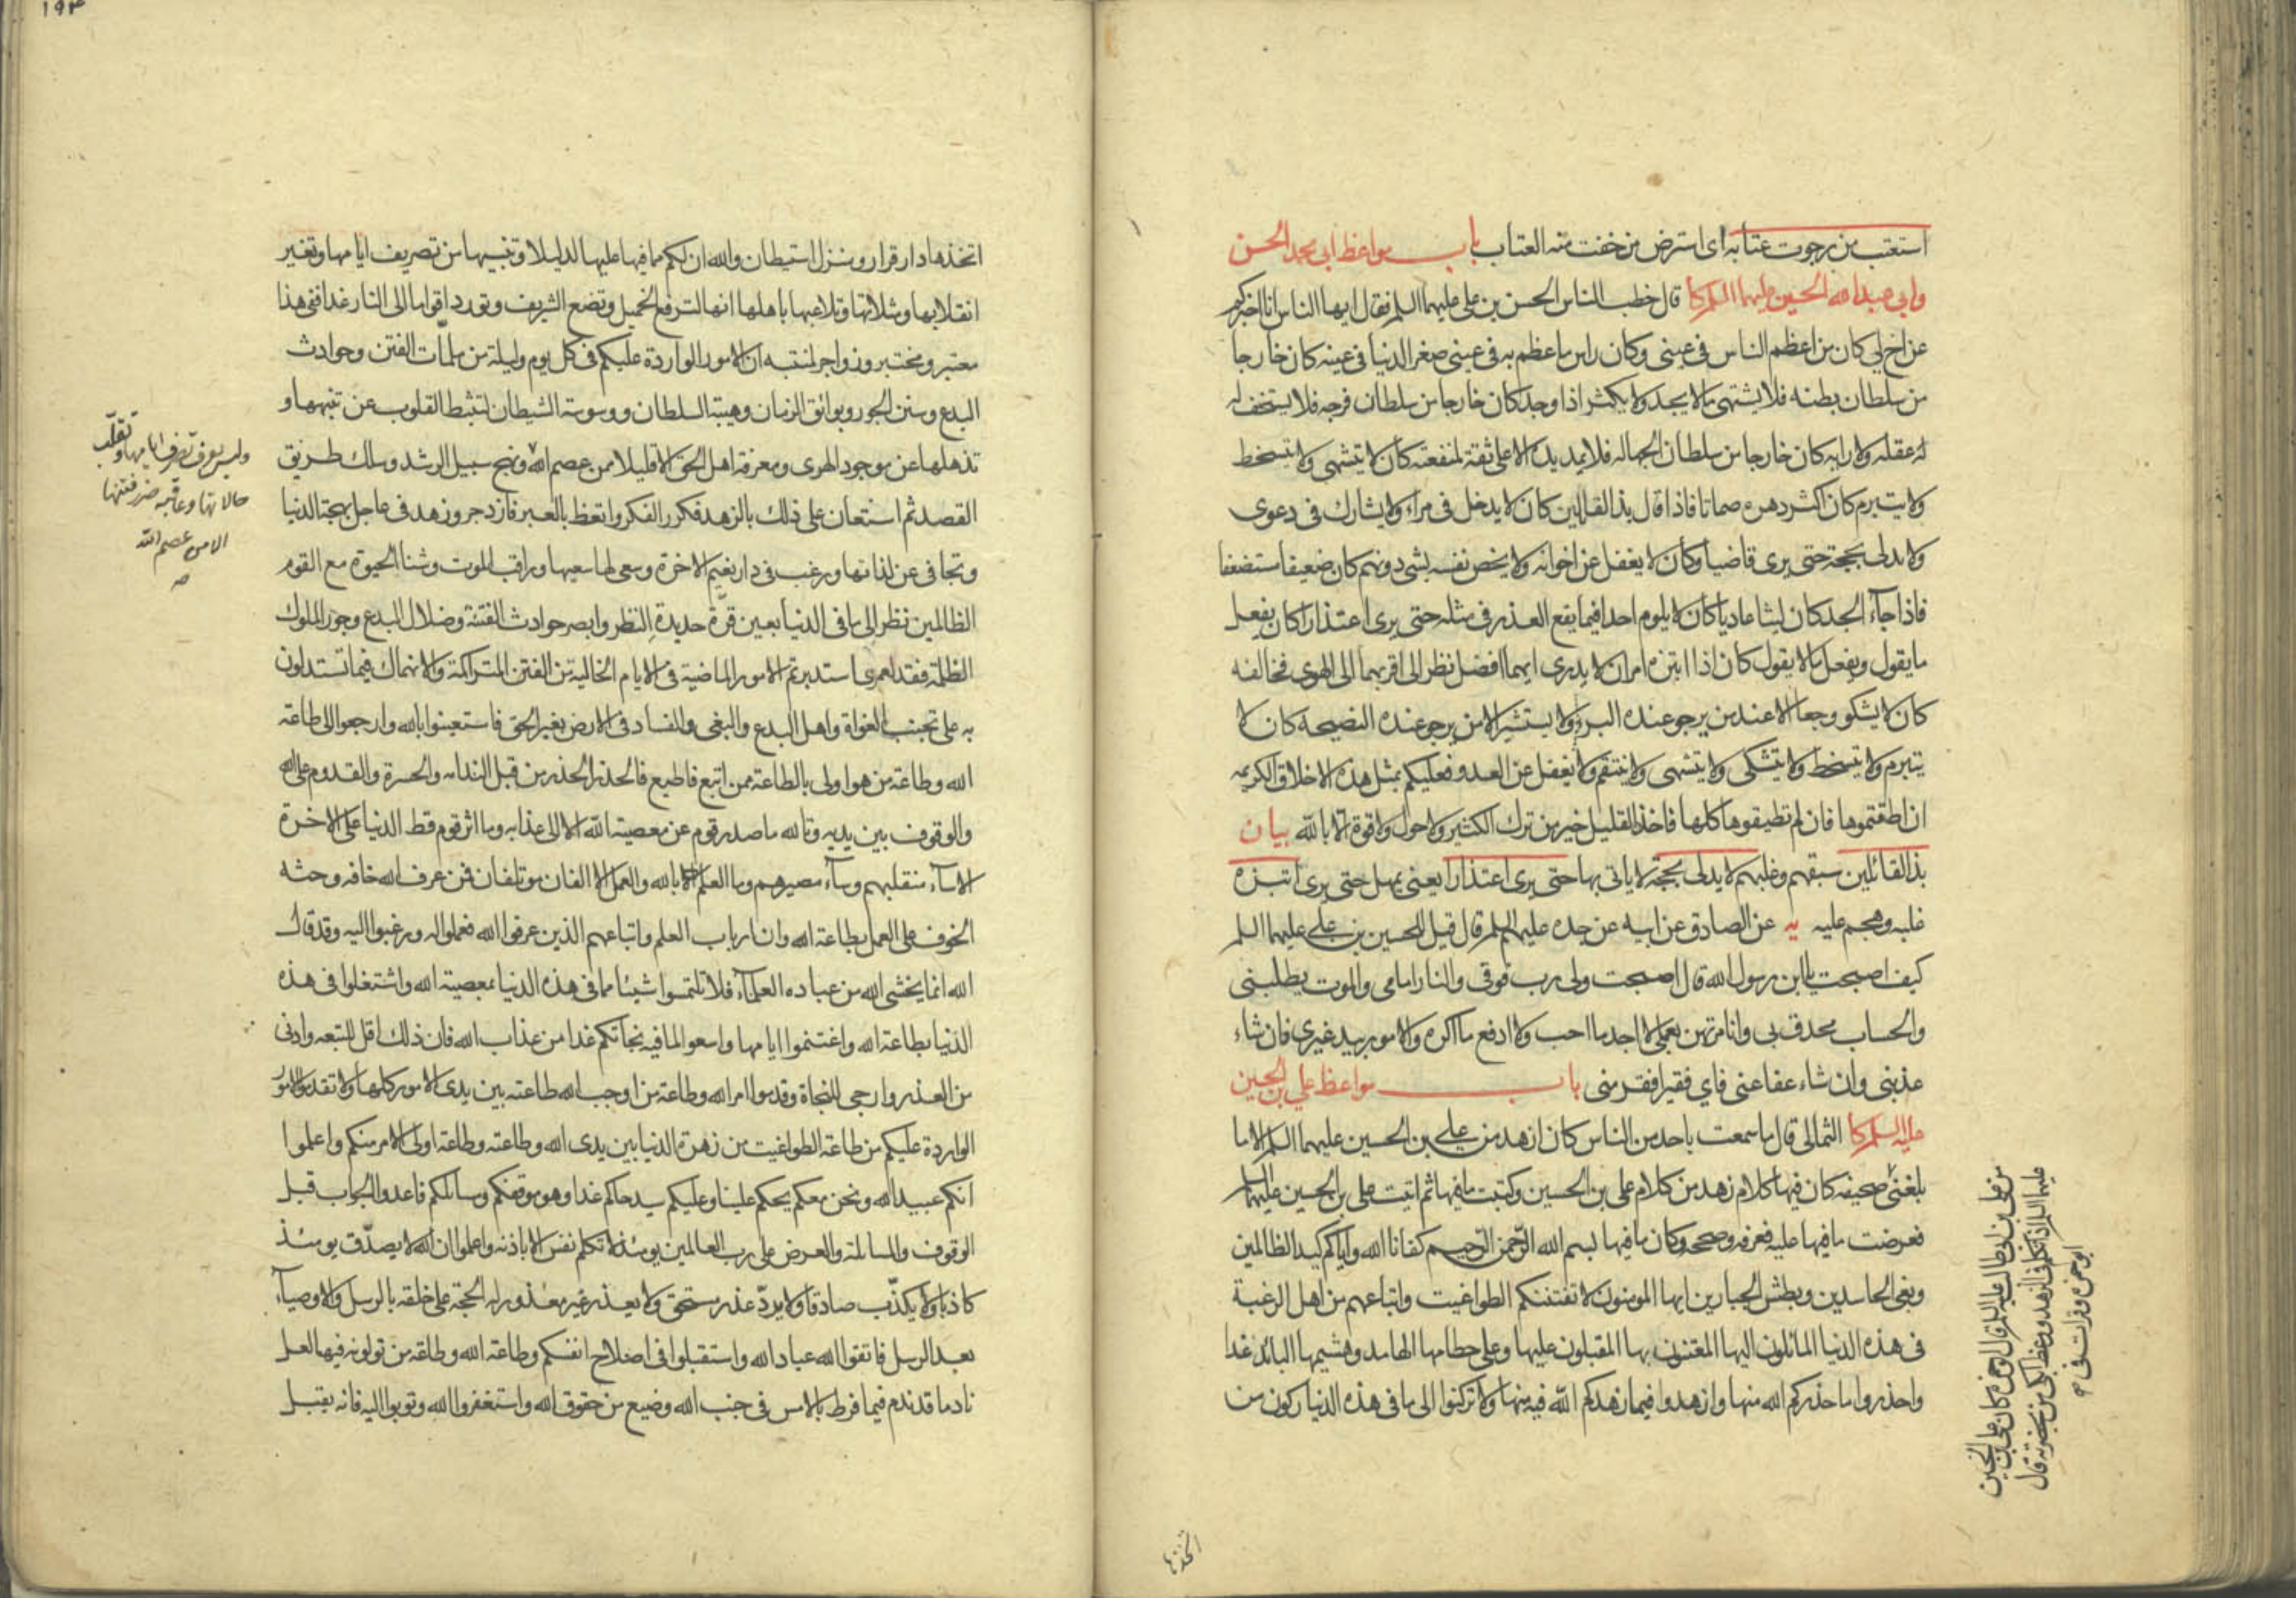 استعتب من رجوت عتابه ای استرض من خفت منه العتاب باب مواعظ ابی محمد الحسن
وابی عبدالله الحسین علیهما السلم کا قال خطب الناس الحسن بن علی علیهما السلم فقال ایها الناس انا اخبرکم
عن اخ لی کان من اعظم الناس فی عینی وکان راس ما عظم به فی عینی صغر الدنیا فی عینه کان خارجا
من سلطان بطنه فلا یشتهی ما لا یجد ولا یکثر اذا وجد کان خارجا من سلطان فرجه فلا یستخف له
له عقله ولا رایه کان خارجا من سلطان الجهالة فلا یمد یده الا علی ثقة لمنفعة کان لا یتشهی ولا یتسخط
ولا یتبرم کان اکثر دهره صماتا فاذا قال بذ القائلین کان لا یدخل فی مراء ولا یشارک فی دعوی
ولا یدلی بحجة حتی یری قاضیا وکان لا یغفل عن اخوانه ولا یخص نفسه بشی دونهم کان ضعیفا مستضعفا
فاذا جآء الجد کان لیثا عادیا کان لا یلوم احدا فیما یقع العذر فی مثله حتی یری اعتذارا کان یفعل
ما یقول ویفعل ما لا یقول کان اذا ابتزه امران لا یدری ایهما افضل نظر الی اقربهما الی الهوی فخالفه
کان لا یشکو وجعا الا عند من یرجو عنده البرء ولا یستشیر الا من یرجو عنده النصیحة کان لا
یتبرم ولا یتسخط ولا یتشکی ولا یتشهی ولا ینتقم ولا یغفل عن العدو فعلیکم بمثل هذه الاخلاق الکریمه
ان اطقتموها فان لم تطیقوها کلها فاخذ القلیل خیر من ترک الکثیر ولا حول ولا قوة الا بالله بیان
بذ القائلین سبقهم وغلبهم لا یدلی بحجة لا یاتی بها حتی یری اعتذارا یعنی یمهل حتی یری ابتزه
غلبه وهجم علیه یه عن الصادق عن ابیه عن جده علیهم السلم قال قیل للحسین بن علی علیهما السلم
کیف اصبحت یا ابن رسول الله قال اصبحت ولی رب فوقی والنار امامی والموت یطلبنی
والحساب محدق بی وانا مرتهن بعملی لا اجد ما احب ولا ادفع ما اکره والامور بید غیری فان شاء
عذبنی وان شاء عفا عنی فای فقیر افقر منی باب مواعظ علی بن الحسین
علیه السلم کا الثمالی قال ما سمعت باحد من الناس کان ازهد من علی بن الحسین علیهما السلم الا ما
بلغنی صحیفه کان فیها کلام زهد من کلام علی بن الحسین وکتبت ما فیها ثم اتیت علی بن الحسین علیهما السلم
فعرضت ما فیها علیه فعرفه وصححه وکان ما فیها بسم الله الرحمن الرحیم کفانا الله وایاکم کید الظالمین
وبغی الحاسدین وبطش الجبارین ایها المومنون لا تفتننکم الطواغیت واتباعهم من اهل الرغبة
فی هذه الدنیا المائلون الیها المفتنون بها المقبلون علیها وعلی حطامها الهامد وهشیمها البائد غدا
واحذروا ما حذرکم الله منها وازهدوا فیما زهدکم الله فیه منها ولا ترکنوا الی ما فی هذه الدنیا رکون من
من علی بن ابی طالب علیه السلم قال ابو حمزه کان علی بن الحسین
علیهما السلم اذا تکلم فی الزهد ووعظ ابکی من بحضرته قال
ابو حمزه وقرات صح
اتخذها
۱۹۴
اتخذها دار قرار ومنزل استیطان والله ان لکم مما فیها علیها لدلیلا وتنبیها من تصریف ایامها وتغیر
انقلابها ومثلاتها وتلاعبها باهلها انها لترفع الخمیل وتضع الشریف وتورد اقواما الی النار غدا ففی هذا
معتبر ومختبر وزواجر لمنتبه ان الامور الواردة علیکم فی کل یوم ولیلة من ملمّات الفتن وحوادث
البدع وسنن الجور وبوائق الزمان وهیبة السلطان ووسوسة الشیطان لتثبط القلوب عن تنبهها و
تذهلها عن موجود الهدی ومعرفة اهل الحق الا قلیلا ممن عصم الله ونهج سبیل الرشد وسلک طریق
القصد ثم استعان علی ذلک بالزهد فکرر الفکر واتعظ بالعبر فازدجر وزهد فی عاجل بهجة الدنیا
وتجافی عن لذاتها ورغب فی دار نعیم الاخرة وسعی لها سعیها وراقب الموت وشنأ الحیوة مع القوم
الظالمین نظر الی ما فی الدنیا بعین قرة حدیدة النظر وابصر حوادث الفتنة وضلال البدع وجور الملوک
الظلمة فقد لعمری استدبرتم الامور الماضیة فی الایام الخالیة من الفتن المتراکمة والانهماک فیما تستدلون
به علی تجنب الغواة واهل البدع والبغی والفساد فی الارض بغیر الحق فاستعینوا بالله وارجعوا الی طاعة
الله وطاعة من هو اولی بالطاعة ممن اتبع فاطیع فالحذر الحذر من قبل الندامه والحسرة والقدوم علی الله
والوقوف بین یدیه وتالله ما صدر قوم عن معصیة الله الا الی عذابه وما اثر قوم قط الدنیا علی الاخرة
الا سآء منقلبهم وسآء مصیرهم وما العلم بالله والعمل الا الفان موتلفان فمن عرف الله خافه وحثه
الخوف علی العمل بطاعة الله وان ارباب العلم واتباعهم الذین عرفوا الله فعملوا له ورغبوا الیه وقد قال
الله انما یخشی الله من عباده العلمآء فلا تلتمسوا شیئا مما فی هذه الدنیا بمعصیة الله واشتغلوا فی هذه
الدنیا بطاعة الله واغتنموا ایامها واسعوا لما فیه نجاتکم غدا من عذاب الله فان ذلک اقل للتبعه وادنی
من العذر وارجی للنجاة وقدموا امر الله وطاعة من اوجب الله طاعته بین یدی الامور کلها ولا تقدموا الامور
الواردة علیکم من طاعة الطواغیت من زهرة الدنیا بین یدی الله وطاعته وطاعة اولی الامر منکم واعلموا
انکم عبید الله ونحن معکم یحکم علینا وعلیکم سید حاکم غدا وهو موقفکم وسائلکم فاعدوا الجواب قبل
الوقوف والمسائلة والعرض علی رب العالمین یومئذ لا تکلم نفس الا باذنه واعلموا ان الله لا یصدّق یومئذ
کاذبا ولا یکذّب صادقا ولا یردّ عذر مستحق ولا یعذر غیر معذور له الحجة علی خلقه بالرسل والاوصیآء
بعد الرسل فاتقوا الله عباد الله واستقبلوا فی اصلاح انفسکم وطاعة الله وطاعة من تولونه فیها لعل
نادما قد ندم فیما فرط بالامس فی جنب الله وضیع من حقوق الله واستغفروا الله وتوبوا الیه فانه یقبل
ولیس یعرف تصرف ایامها وتقلّب
حالاتها وعاقبة ضرر فتنتها
الا من عصم الله
صح